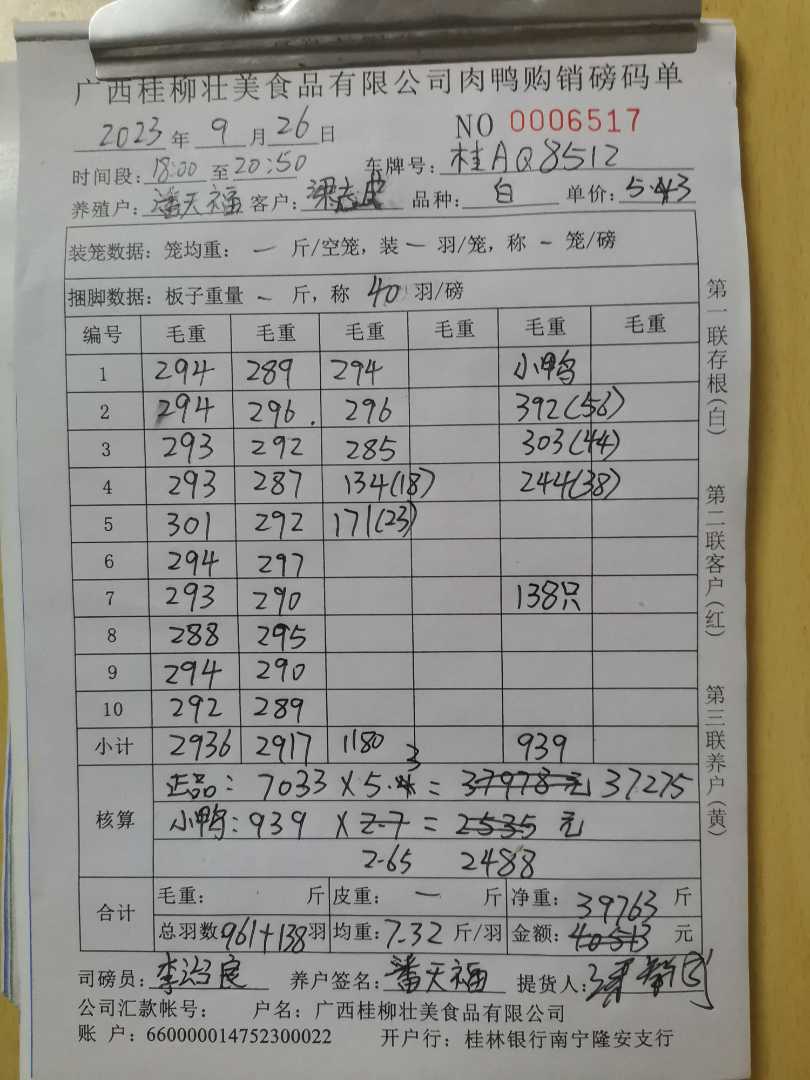 广西桂柳壮美食品有限公司肉鸭购销磅码单
2023 年 9 月 26 日 NO 0006517
时间段: 18:00 至 20:50 车牌号: 桂AQ8512
养殖户: 潘天福 客户: 品种: 白 单价: 5.43
装笼数据: 笼均重: 一 斤/空笼, 装 一 羽/笼, 称 一 笼/磅
捆脚数据: 板子重量 一 斤, 称 40 羽/磅
编号 毛重 毛重 毛重 毛重 毛重 毛重
1 294 289 294 小鸭
2 294 296. 296 392(56)
3 293 292 285 303(44)
4 293 287 134(18) 244(38)
5 301 292 171(23)
6 294 297
7 293 290 138只
8 288 295
9 294 290
10 292 289
小计 2936 2917 1180 939
核算
正品: 7033 × 5.3 = 37978元 37275
小鸭: 939 × 2.7 = 2535 元
2.65 2488
合计
毛重: 斤 皮重: 一 斤 净重: 39763 斤
总羽数 961+138 羽 均重: 7.32 斤/羽 金额: 40513 元
司磅员: 养户签名: 潘天福 提货人:
公司汇款帐号: 户名: 广西桂柳壮美食品有限公司
账 户: 660000014752300022 开户行: 桂林银行南宁隆安支行
第一联存根(白)
第二联客户(红)
第三联养户(黄)